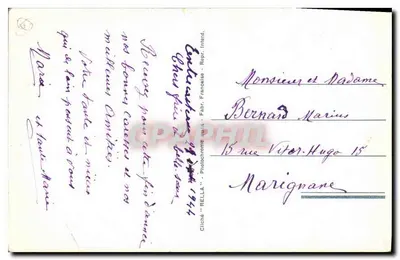 Entrecasteaux 29 Xbre 1944
Chers frère et belle sœur
Recevez pour cette fin d'année
nos bonnes caresses et nos
meilleures amitiés.
Votre tante et nièces
qui de loin pensent à vous
Marie et tante Marie
Cliché "RELLA" - Fabr. Française - Repr. Interd.
Monsieur et Madame
Bernard Marius
15 rue Victor-Hugo 15
Marignane
CPARAMA